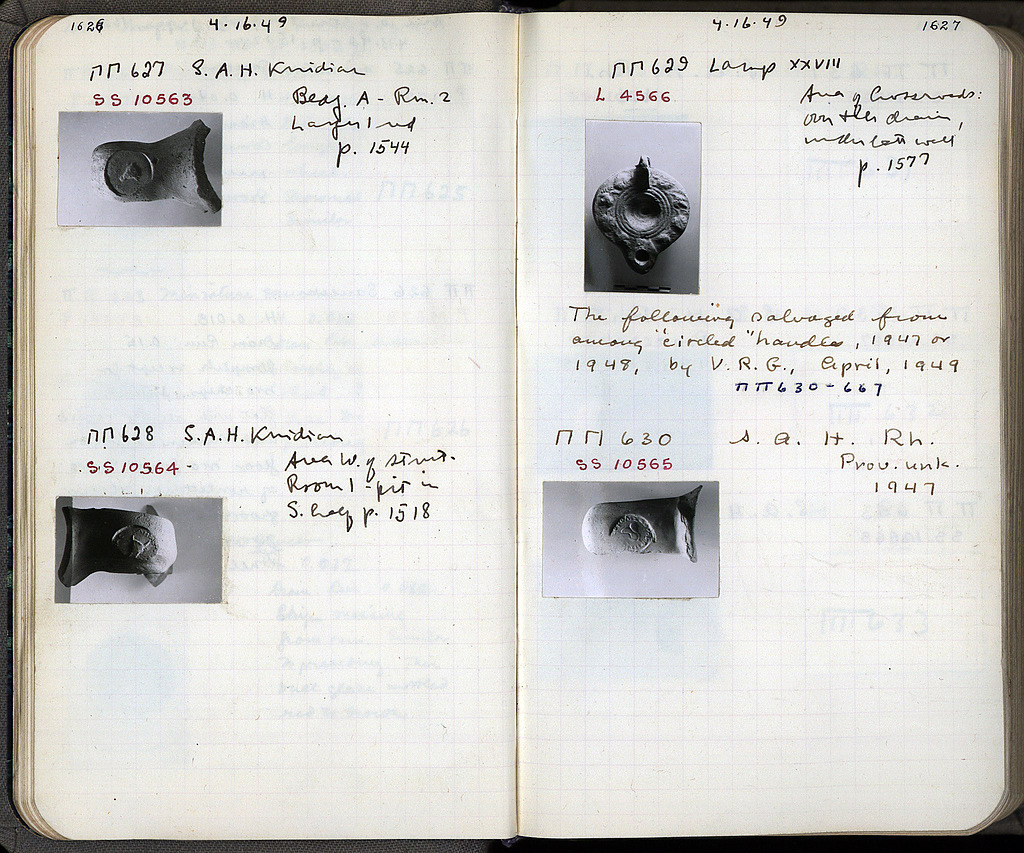 1626
4.16.49
ΠΠ 627 S.A.H. Knidian
SS 10563
Bldg. A - Rm. 2
Layer I
p. 1544
ΠΠ 628 S.A.H. Knidian
SS 10564 -
Area W. of struct.
Room 1 - pit in
S. half p. 1518
4.16.49
1627
ΠΠ 629 Lamp XXVIII
L 4566
Area of Crossroads:
over the drain,
under late wall
p. 1577
The following salvaged from
among "circled" handles, 1947 or
1948, by V.R.G., April, 1949
ΠΠ 630-667
ΠΠ 630 S.A.H. Rh.
SS 10565
Prov. unk.
1947